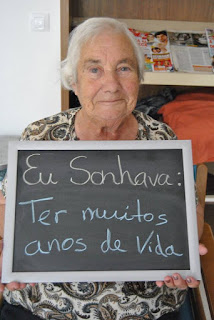 Eu Sonhava:
Ter muitos
anos de Vida